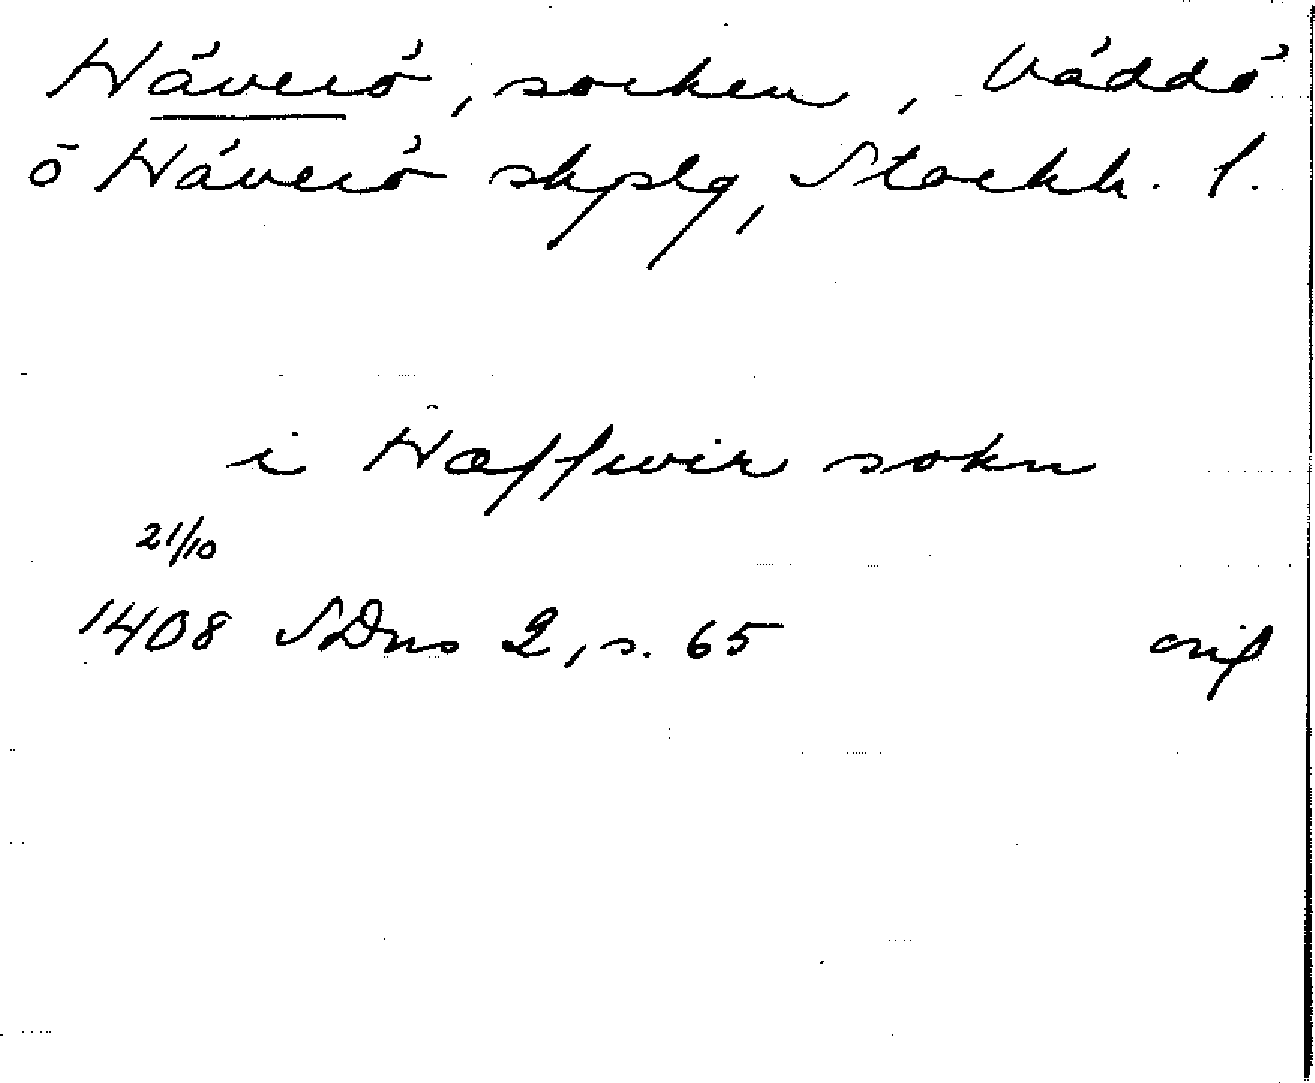 Häverö, socken, Väddö
o Häverö skplg, Stockh. l.
i Hæffwir sokn
21/10
1408 SDns 2, s. 65 orig